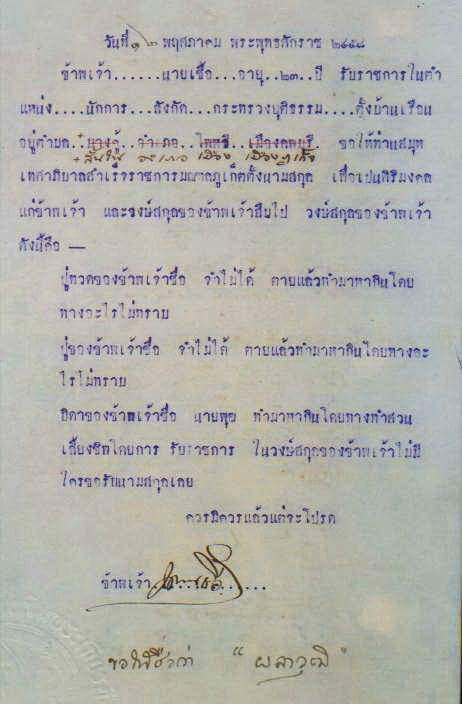 วันที่ ๑๒ พฤศภาคม พระพุทธศักราช ๒๔๕๘
ข้าพเจ้า......นายเชื้อ...อายุ..๒๓..ปี รับราชการในตำ
แหน่ง....นักการ...สังกัด...กระทรวงยุติธรรม....ตั้งบ้านเรือน
อยู่ตำบล..บางคู้ อำเภอ โพหวี เมืองลพบุรี ขอให้ท่านสมุห
อำเภอ เมือง เมืองภูเก็ต
เทศาภิบาลสำเร็จราชการมณฑลภูเก็ตตั้งนามสกุล เพื่อเปนศิริมงคล
แก่ข้าพเจ้า และวงษ์สกุลของข้าพเจ้าสืบไป วงษ์สกุลของข้าพเจ้า
ดังนี้คือ —
ปู่ทวดของข้าพเจ้าชื่อ จำไม่ได้ ตายแล้วทำมาหากินโดย
ทางอะไรไม่ทราบ
ปู่ของข้าพเจ้าชื่อ จำไม่ได้ ตายแล้วทำมาหากินโดยทางอะ
ไรไม่ทราบ
บิดาของข้าพเจ้าชื่อ นายพุฒ ทำมาหากินโดยทางทำสวน
เลี้ยงชีพโดยการ รับราชการ ในวงษ์สกุลของข้าพเจ้าไม่มี
ใครขอรับนามสกุลเลย
ควรมิควรแล้วแต่จะโปรด
ข้าพเจ้า นายเชื้อ
ขอให้ชื่อว่า " ผลาวุฒิ "